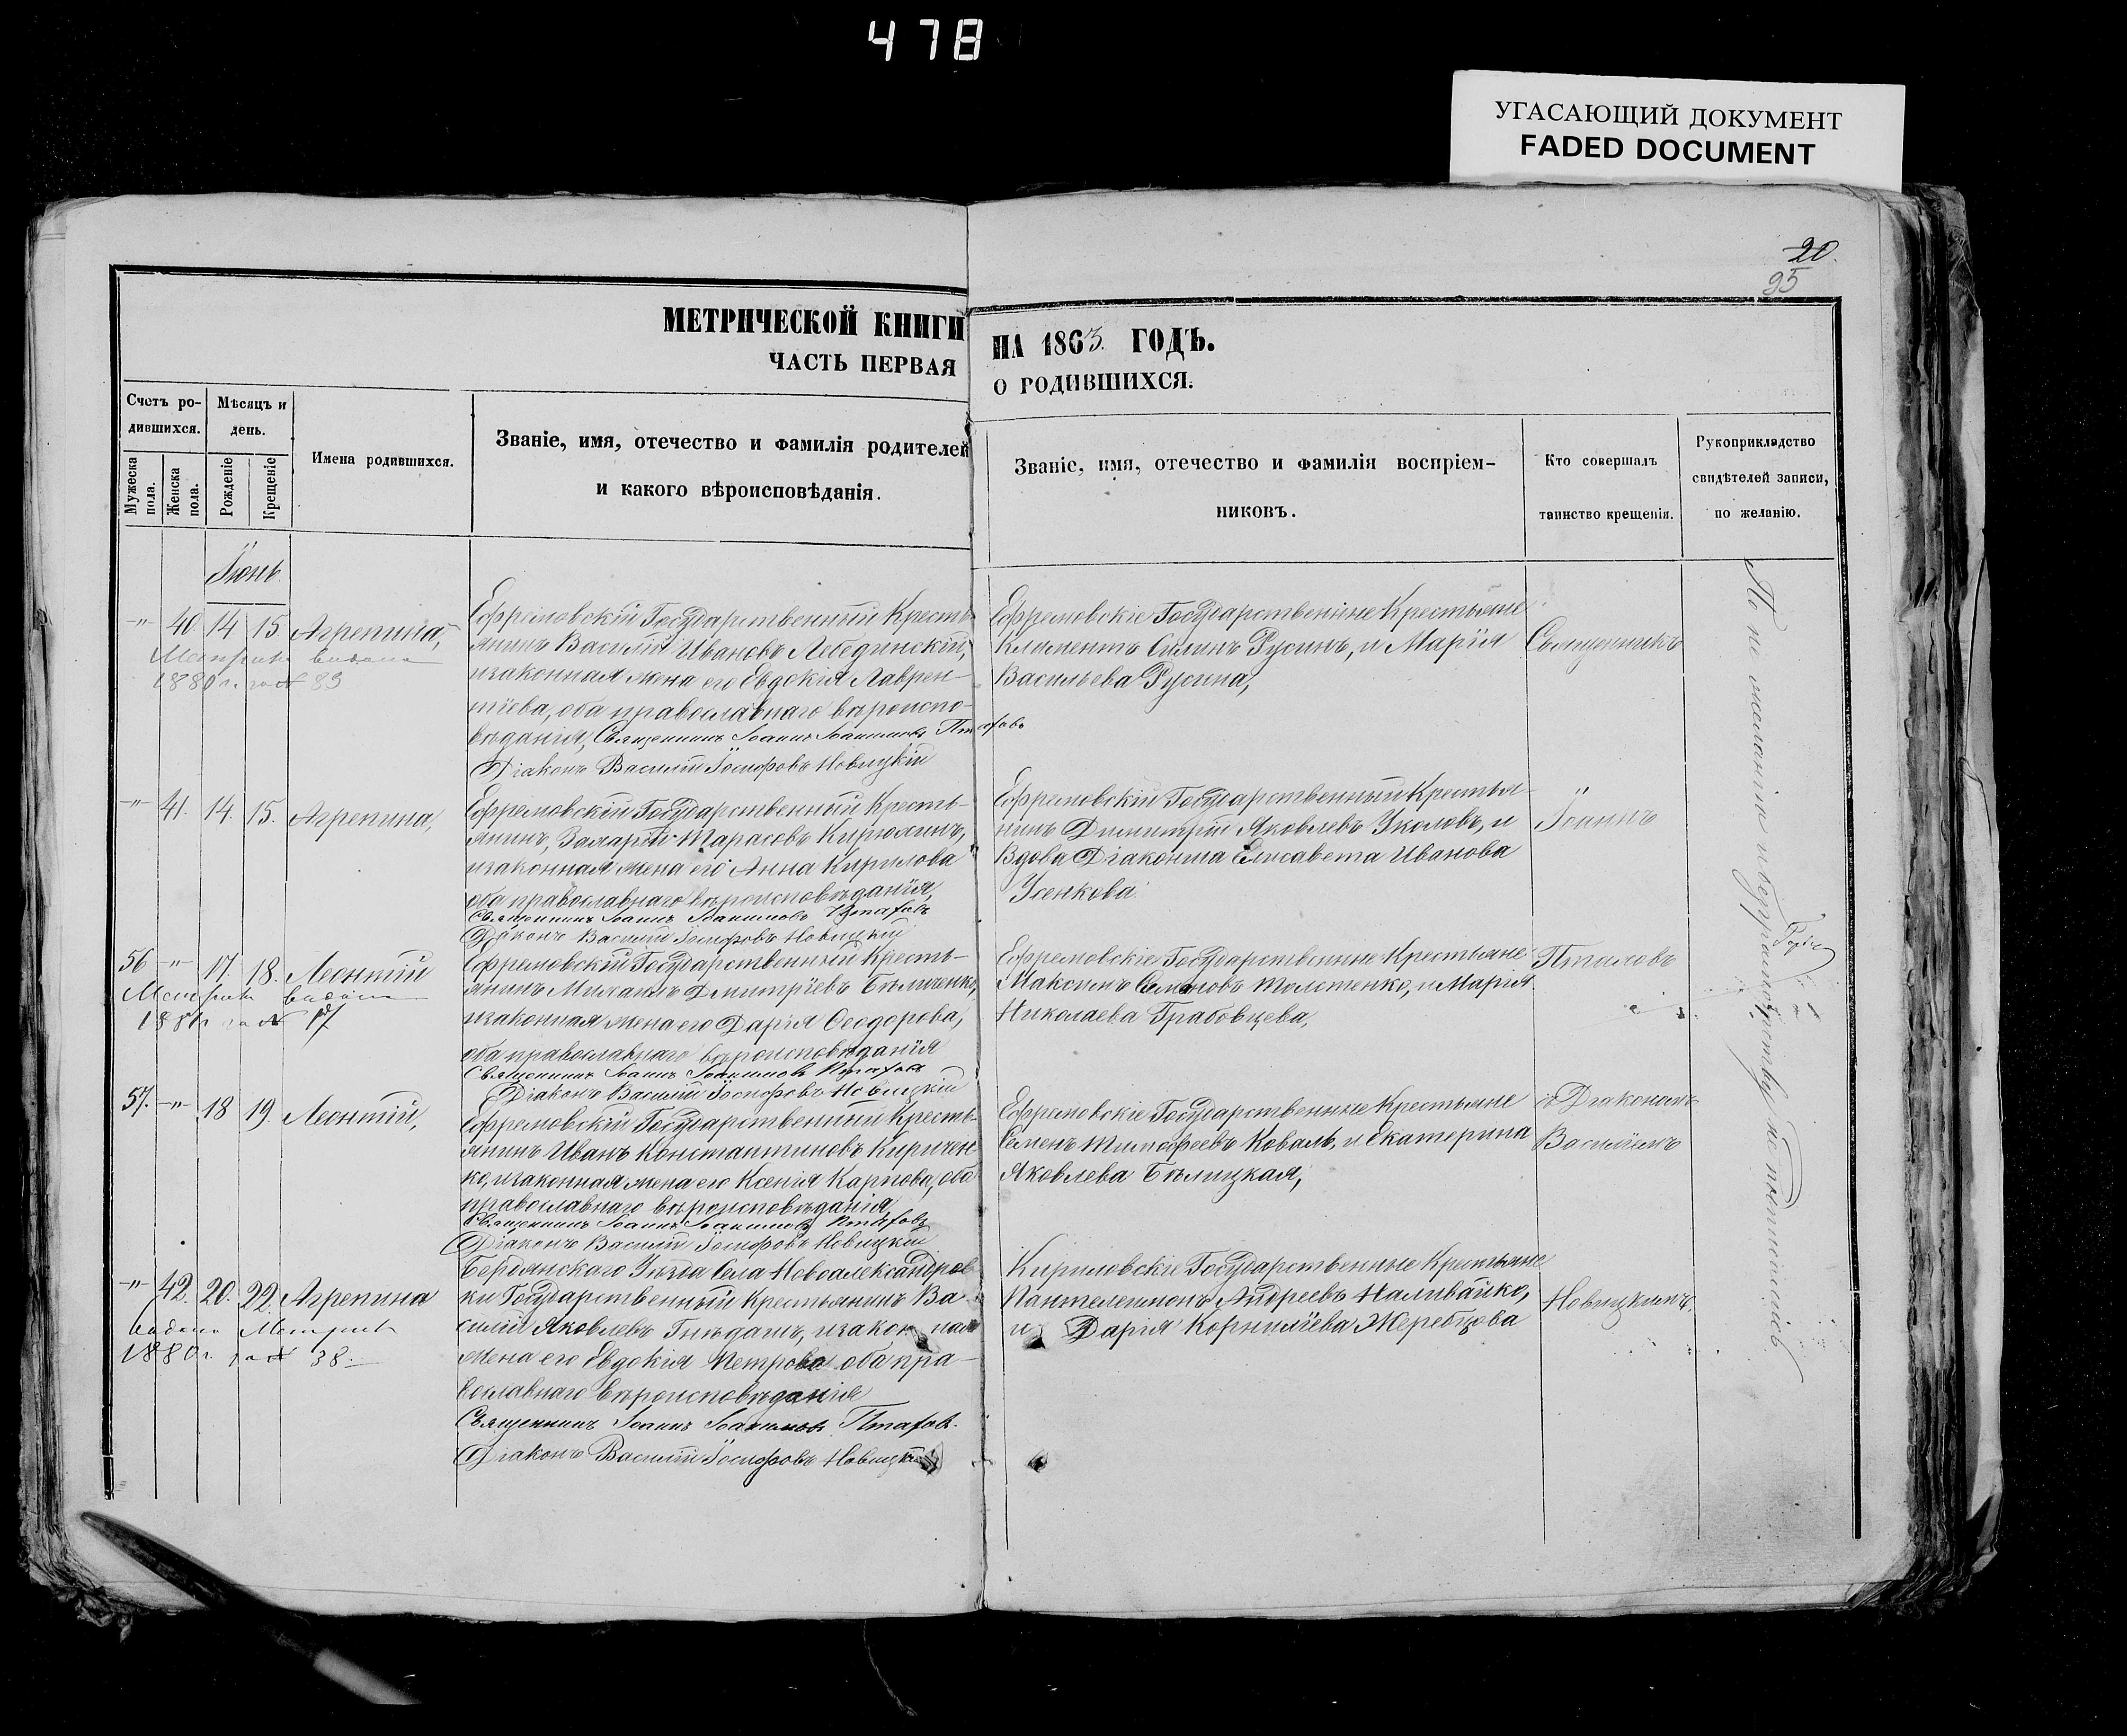 478
УГАСАЮЩИЙ ДОКУМЕНТ
FADED DOCUMENT
20.
95
МЕТРИЧЕСКОЙ КНИГИ НА 1863. ГОДЪ.
ЧАСТЬ ПЕРВАЯ О РОДИВШИХСЯ.
Счетъ ро-
дившихся.
Мужеска пола.
Женска пола.
Мѣсяцъ и
день.
Рожденіе
Крещеніе
Имена родившихся.
Званіе, имя, отечество и фамилія родителей
и какого вѣроисповѣданія.
Званіе, имя, отечество и фамилія воспріем-
никовъ.
Кто совершалъ
таинство крещенія.
Рукоприкладство
свидѣтелей записи,
по желанію.
Іюнь.
-"- 40 14 15 Агрепина,
Метрика видана
1880 г. за № 83
Ефремовскій Государственный Кресть-
янинъ Василій Ивановъ Лебединскій,
изаконная жена его Евдокія Лаврен-
тіева, оба православнаго вѣроиспо-
вѣданія, Священникъ Іоаннъ Іоакимовъ Птаховъ
Діаконъ Василій Іосифовъ Новицкій
Ефремовскіе Государственные Крестьяне
Климентъ Силинъ Русинъ, и Марія
Васильева Русина,
Священникъ
-"- 41. 14. 15. Агрепина,
Ефремовскій Государственный Кресть-
янинъ, Захарій Тарасовъ Кирюхинъ,
изаконная жена его Анна Кирилова
оба православнаго вѣроисповѣданія,
Священникъ Іоаннъ Іоакимовъ Птаховъ
Діаконъ Василій Іосифовъ Новицкій
Ефремовскій Государственный Крестья-
нинъ Димитрій Яковлевъ Уколовъ, и
Вдова Діаконша Елисавета Иванова
Усенкова.
Іоаннъ
56 -"- 17. 18. Леонтій
Метрика видана
1881 г за № 17
Ефремовскій Государственный Кресть-
янинъ Михаилъ Дмитріевъ
изаконная жена его Дарія Ѳеодорова,
оба православнаго вѣроисповѣданія
Священникъ Іоаннъ Іоакимовъ Птаховъ
Діаконъ Василій Іосифовъ Новицкій
Ефремовскіе Государственные Крестьяне
Максимъ Семеновъ Толстенко, и Марія
Николаева Грабовцева,
Птаховъ
57. -"- 18 19. Леонтій,
Ефремовскій Государственный Кресть-
янинъ Иванъ Константиновъ Киричен-
ко, изаконная жена его Ксенія Карпова, оба
православнаго вѣроисповѣданія,
Священникъ Іоаннъ Іоакимовъ Птаховъ
Діаконъ Василій Іосифовъ Новицкій
Ефремовскіе Государственные Крестьяне
Семенъ Тимофеевъ Коваль, и Екатерина
Яковлева Бѣлицкая,
съ Діакономъ
Василіемъ
-"- 42. 20. 22. Агрепина
видана Метрика
1880 г. за № 38.
Бердянскаго Уѣзда Села Новоалександров-
ки Государственный Крестьянинъ Ва-
силій Яковлевъ Гнѣдашъ, изаконная
жена его Евдокія Петрова оба пра-
вославнаго вѣроисповѣданія
Священникъ Іоаннъ Іоакимовъ Птаховъ.
Діаконъ Василій Іосифовъ Новицкій
Кириловскіе Государственные Крестьяне
Пантелеимонъ Андреевъ Наливайко,
и Дарія Корниліева Жеребцова
Новицкимъ.
По не желанію и неграмотству не подписались.